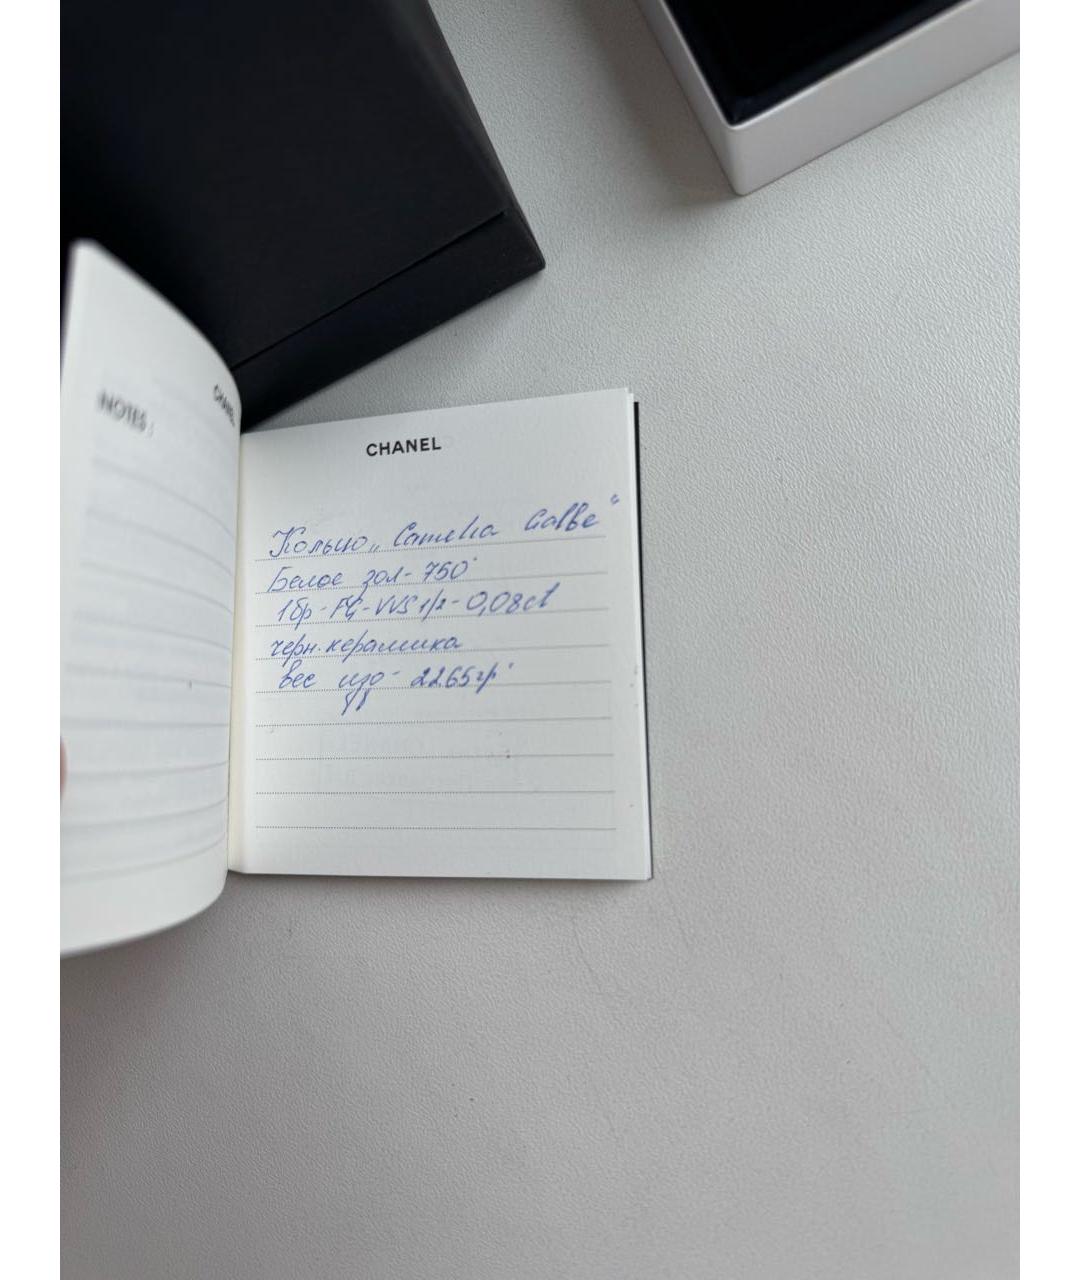 NOTES:
CHANEL
CHANEL
Кольцо „Camelia Galbe“
Белое зол- 750°
1бр - FG - VVS 1/2 - 0,08ct
черн. керамика
вес изд - 22.65гр